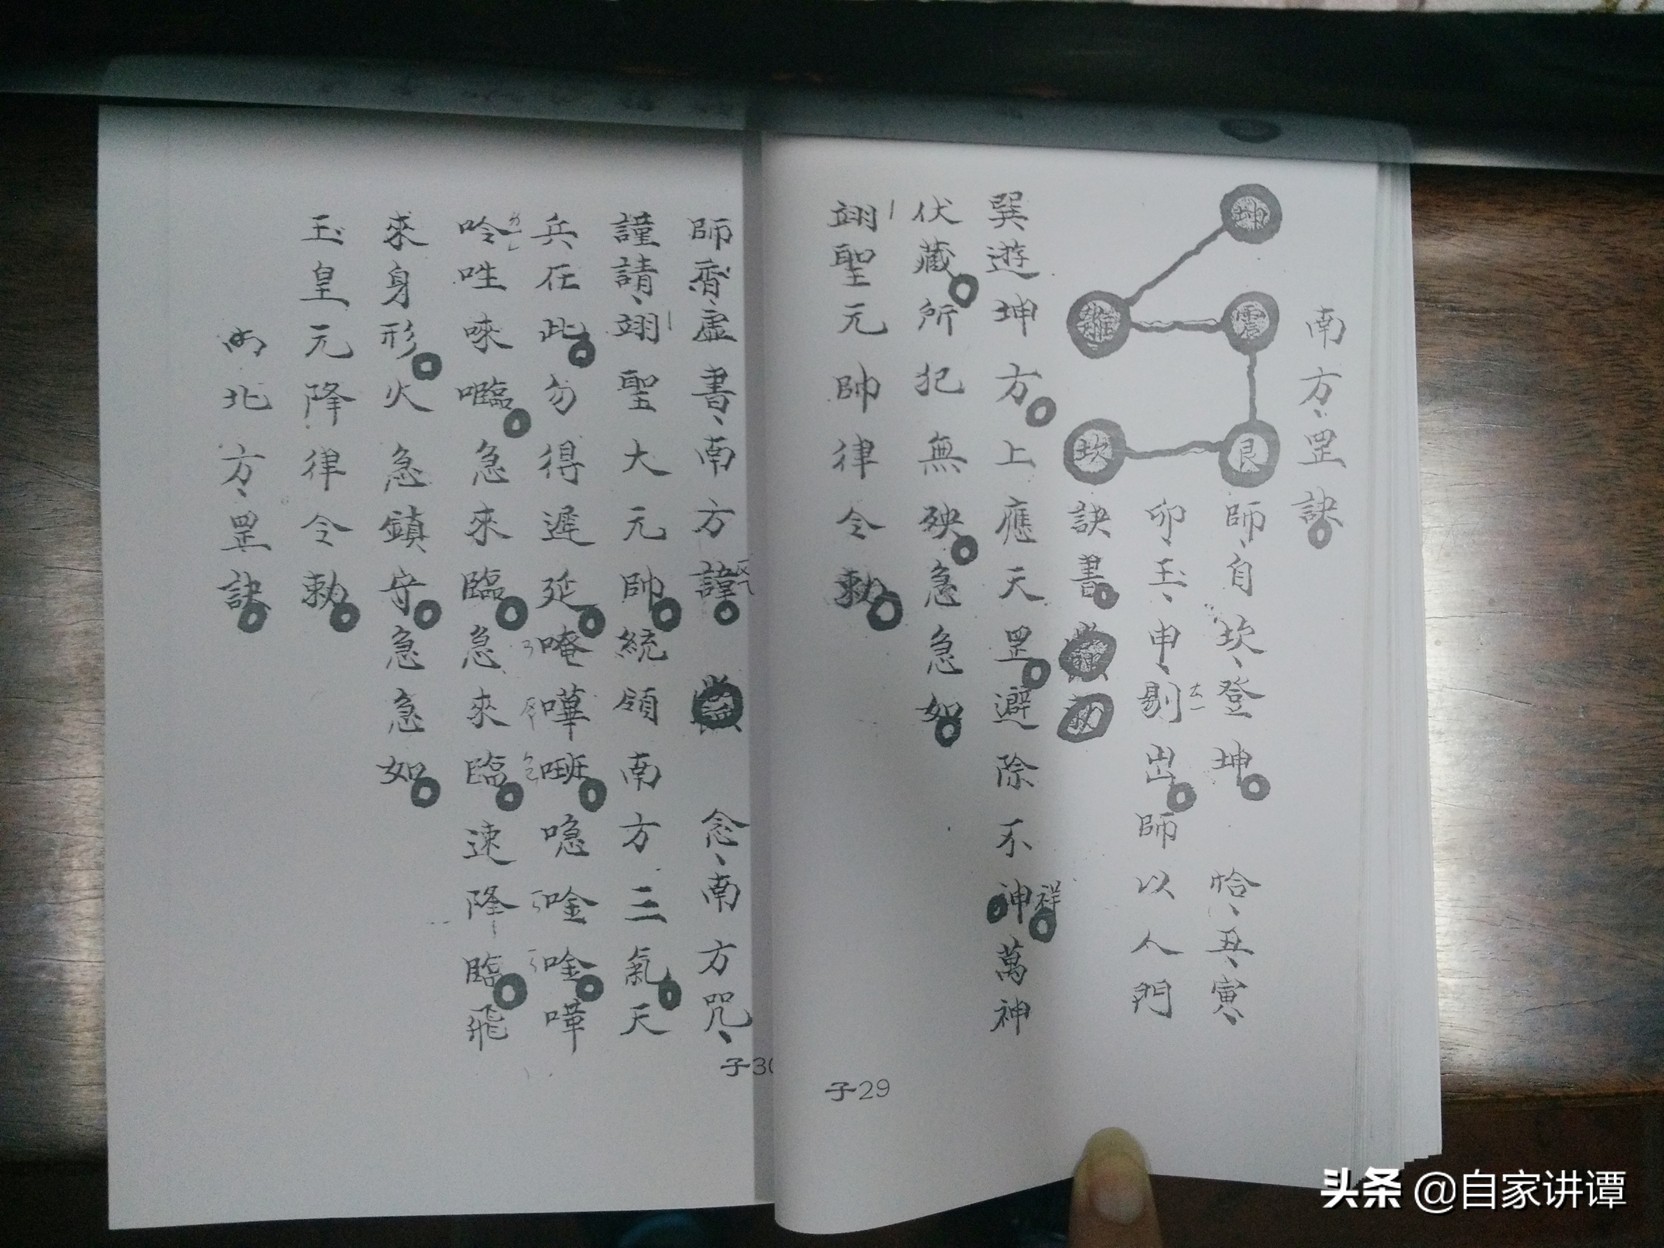 南方罡訣
坤
離 震
坎 艮
師自坎登坤 恰丑寅
卯玉申剔出師以人門
訣書
巽遊坤方上應天罡避除不神祥萬神
伏藏所犯無殃急急如
翊聖元帥律令勅
子29
師齋虛書南方諱 念南方咒
謹請翊聖大元帥統領南方三氣天
兵在此勿得遲延唵嘩㘺噁唫唫嘩
唥𠯜唻㘋急來臨急來臨速降臨飛
來身形火急鎮守急急如
玉皇元降律令勅
北方罡訣
子30
头条 @自家讲谭